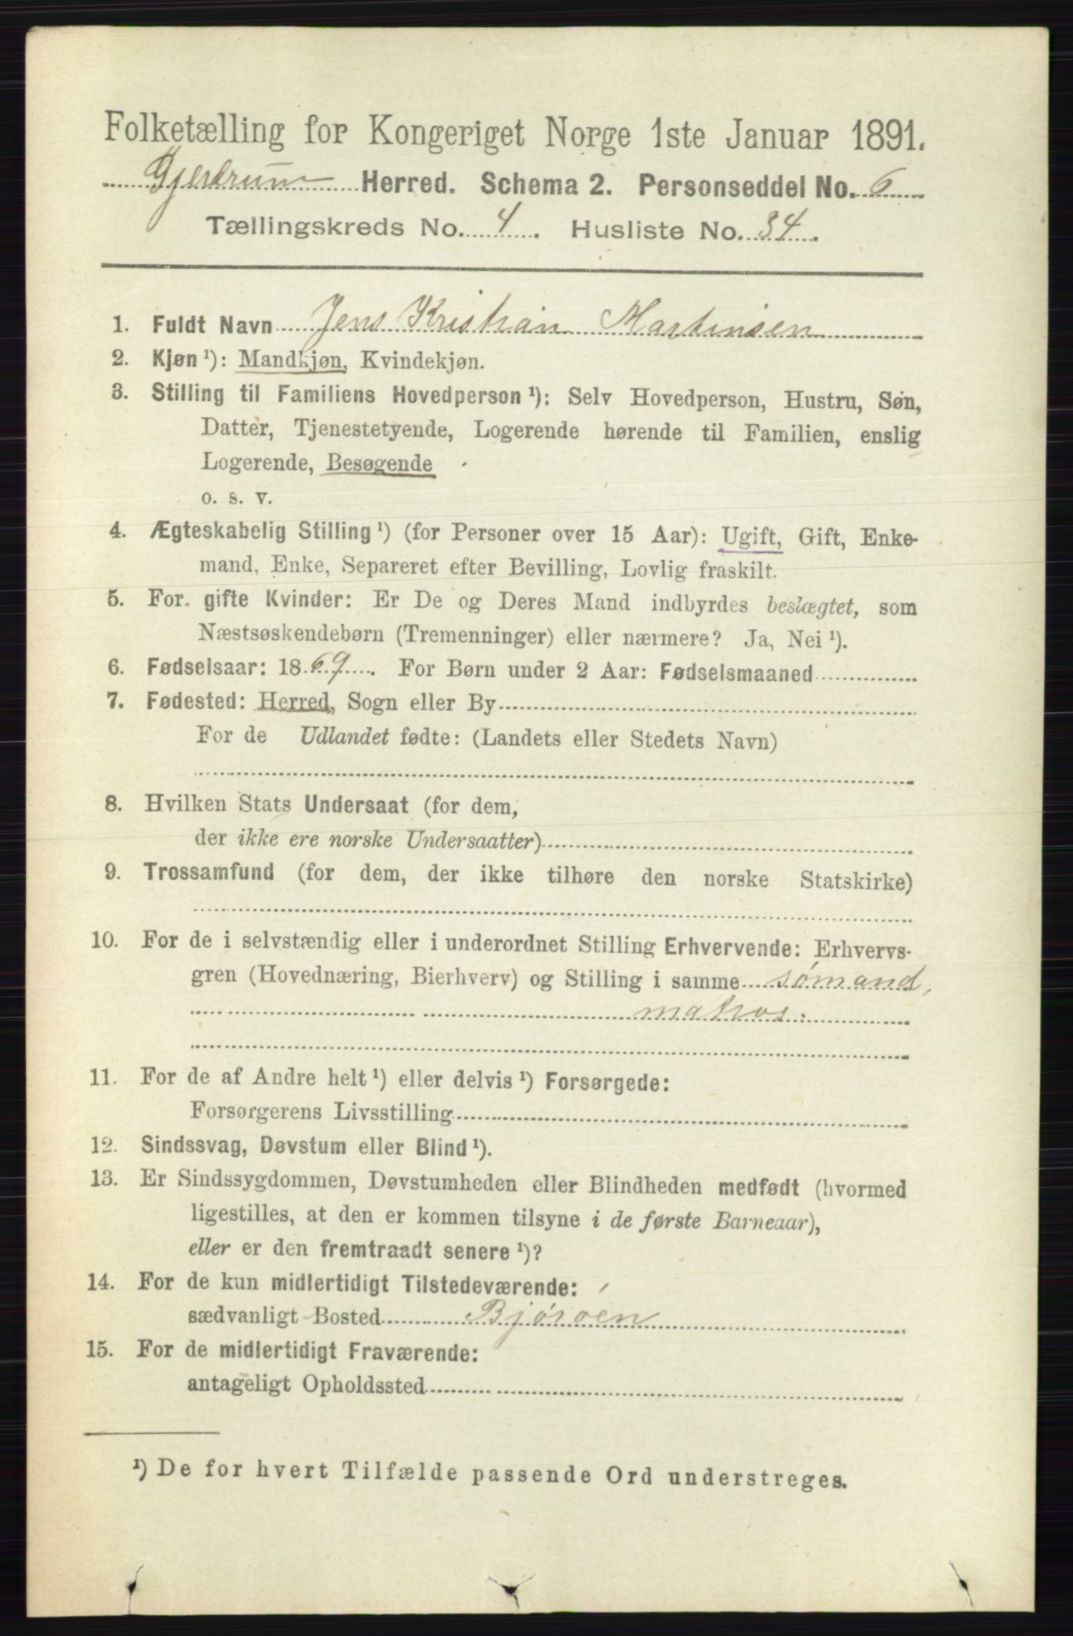 Folketælling for Kongeriget Norge 1ste Januar 1891.
Gjerdrum Herred. Schema 2. Personseddel No. 6
Tællingskreds No. 4. Husliste No. 34.
1. Fuldt Navn Jens Kristian Martinsen
2. Kjøn ¹): Mandkjøn, Kvindekjøn.
3. Stilling til Familiens Hovedperson ¹): Selv Hovedperson, Hustru, Søn,
Datter, Tjenestetyende, Logerende hørende til Familien, enslig
Logerende, Besøgende
o. s. v.
4. Ægteskabelig Stilling ¹) (for Personer over 15 Aar): Ugift, Gift, Enke-
mand, Enke, Separeret efter Bevilling, Lovlig fraskilt.
5. For gifte Kvinder: Er De og Deres Mand indbyrdes beslægtet, som
Næstsøskendebørn (Tremenninger) eller nærmere? Ja, Nei ¹).
6. Fødselsaar: 1869. For Børn under 2 Aar: Fødselsmaaned
7. Fødested: Herred, Sogn eller By
For de Udlandet fødte: (Landets eller Stedets Navn)
8. Hvilken Stats Undersaat (for dem,
der ikke ere norske Undersaatter)
9. Trossamfund (for dem, der ikke tilhøre den norske Statskirke)
10. For de i selvstændig eller i underordnet Stilling Erhvervende: Erhvervs-
gren (Hovednæring, Bierhverv) og Stilling i samme sømand,
matros.
11. For de af Andre helt ¹) eller delvis ¹) Forsørgede:
Forsørgerens Livsstilling
12. Sindssvag, Døvstum eller Blind ¹).
13. Er Sindssygdommen, Døvstumheden eller Blindheden medfødt (hvormed
ligestilles, at den er kommen tilsyne i de første Barneaar),
eller er den fremtraadt senere ¹)?
14. For de kun midlertidigt Tilstedeværende:
sædvanligt Bosted
15. For de midlertidigt Fraværende:
antageligt Opholdssted
¹) De for hvert Tilfælde passende Ord understreges.